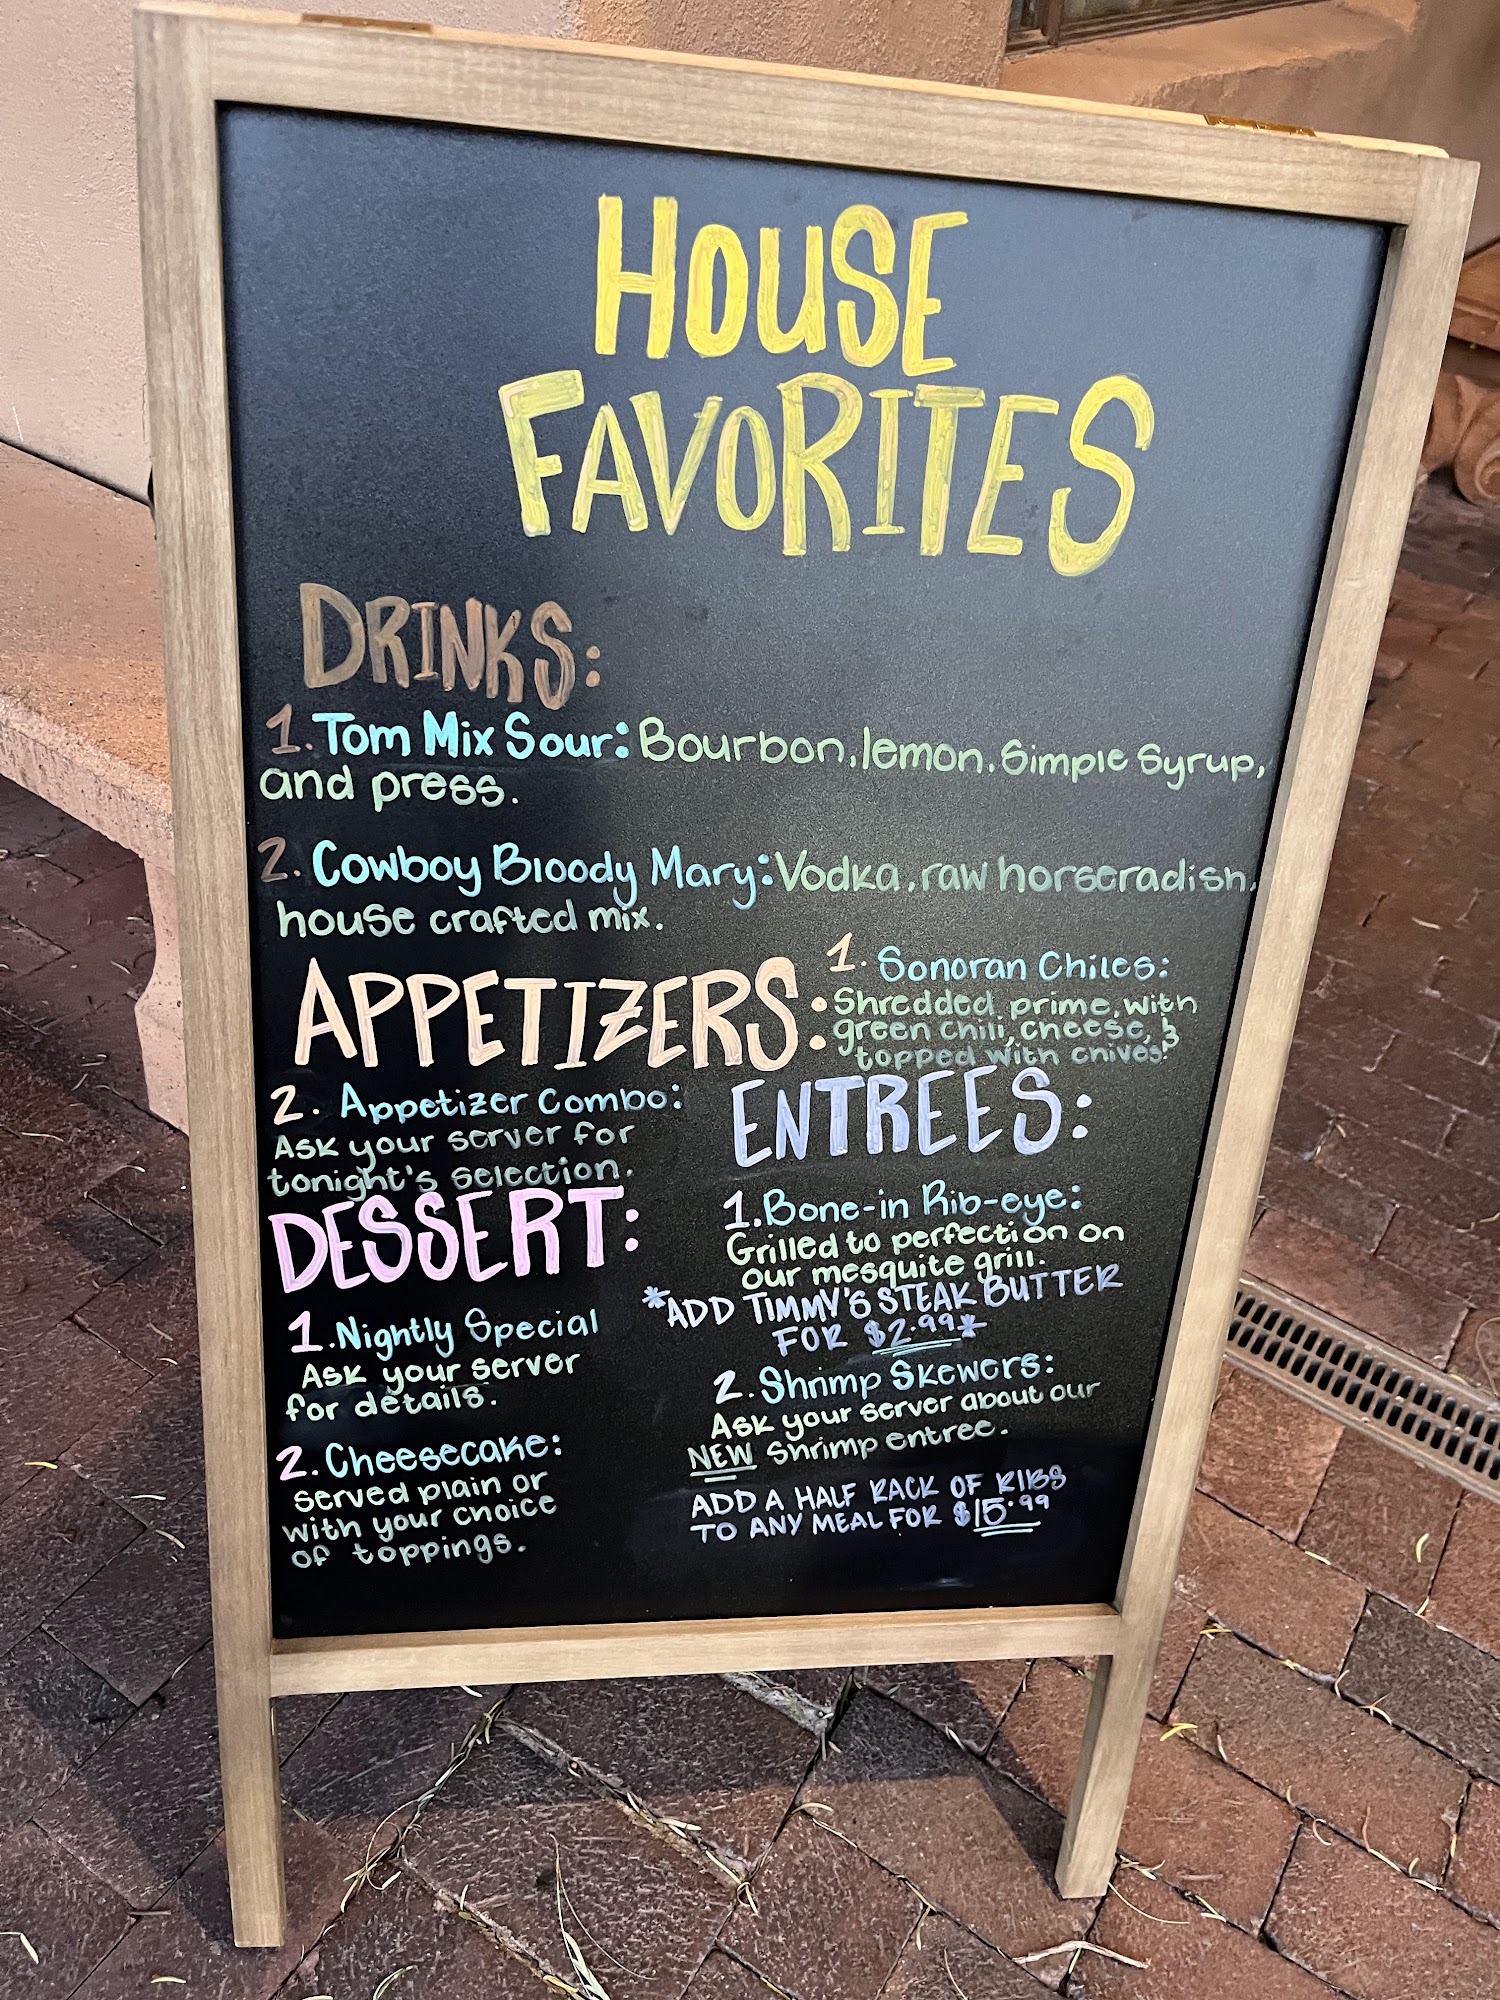 HOUSE
FAVORITES
DRINKS:
1. Tom Mix Sour: Bourbon, lemon, Simple Syrup,
and press.
2. Cowboy Bloody Mary: Vodka, raw horseradish,
house crafted mix.
APPETIZERS:
1. Sonoran Chiles:
Shredded prime, with
green chili, cheese, &
topped with chives!
2. Appetizer Combo:
Ask your server for
tonight's selection.
ENTREES:
1. Bone-in Rib-eye:
Grilled to perfection on
our mesquite grill.
*ADD TIMMY'S STEAK BUTTER
FOR $2.99*
2. Shrimp Skewers:
Ask your server about our
NEW Shrimp entree.
ADD A HALF RACK OF RIBS
TO ANY MEAL FOR $15.99
DESSERT:
1. Nightly Special
Ask your server
for details.
2. Cheesecake:
Served plain or
with your choice
of toppings.